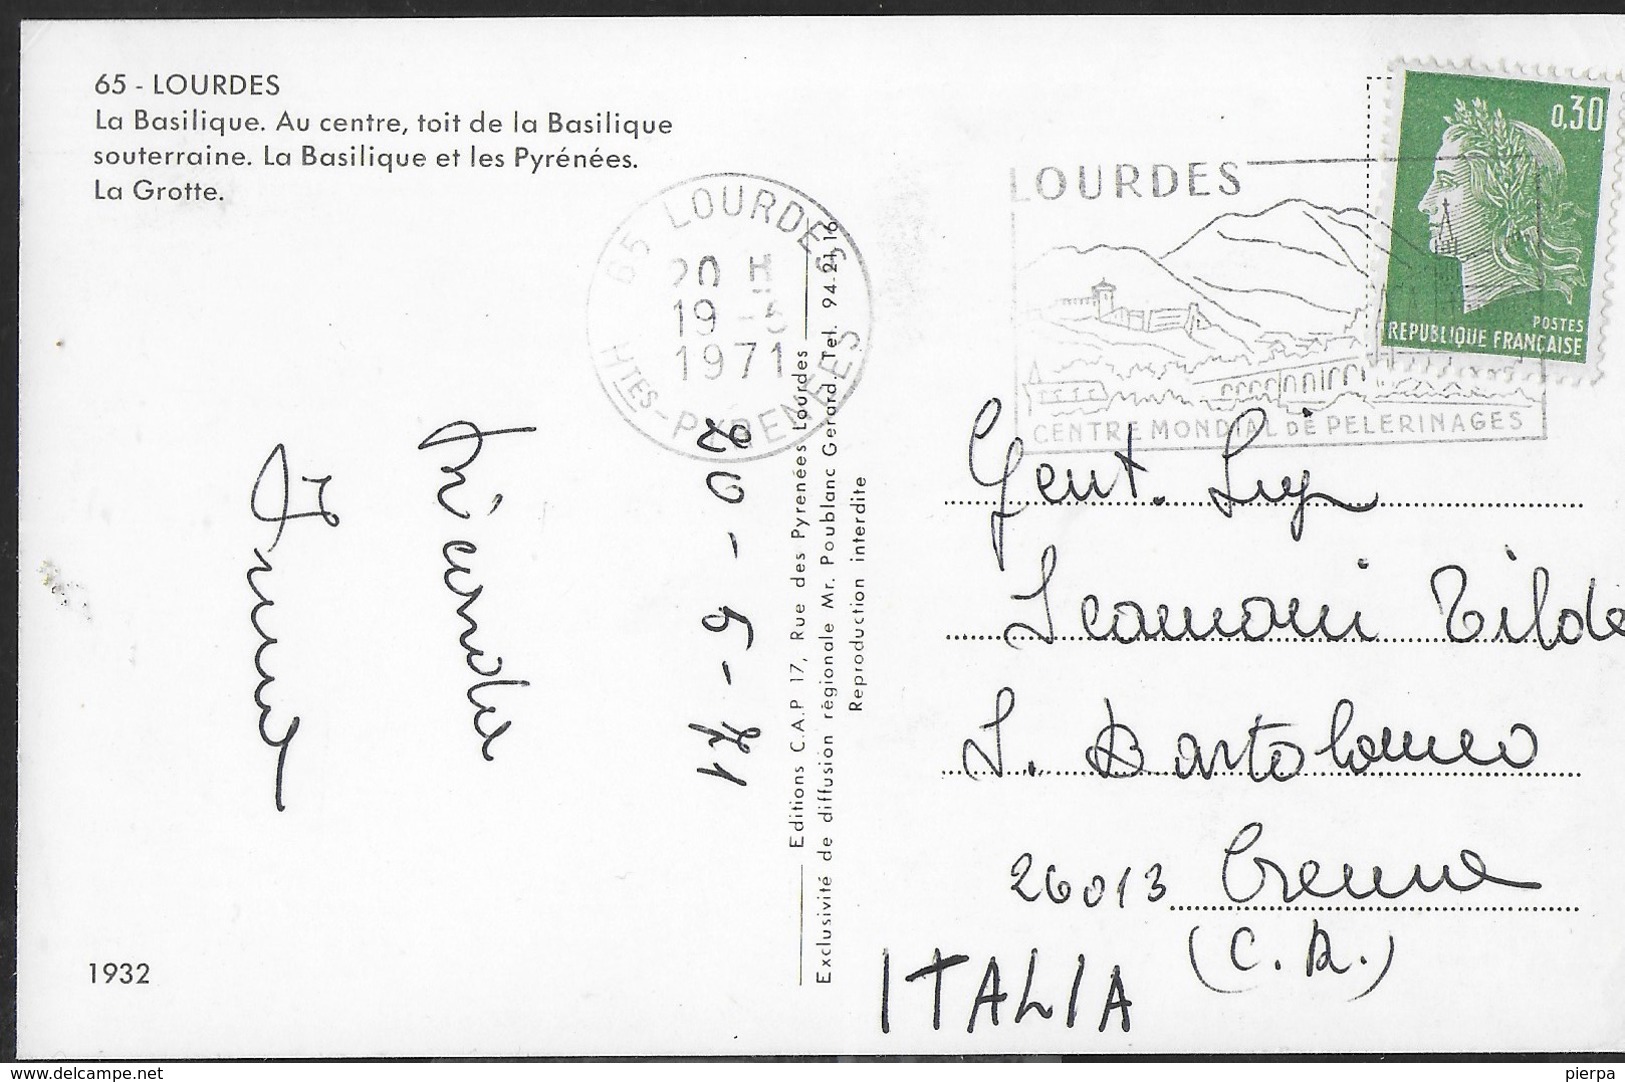 65 - LOURDES
La Basilique. Au centre, toit de la Basilique
souterraine. La Basilique et les Pyrénées.
La Grotte.
65 LOURDES
20 H
19 -5
1971
HTES-PYRENEES
LOURDES
CENTRE MONDIAL DE PELERINAGES
0,30
POSTES
REPUBLIQUE FRANÇAISE
20-5-71
Ricordo
Editions C.A.P 17, Rue des Pyrenées Lourdes
Exclusivité de diffusion régionale Mr. Poublanc Gerard. Tel. 94-21,16
Reproduction interdite
Gent. Sig
Scamani Tilde
S. Bartolomeo
26013 Crema
(C.R.)
ITALIA
1932
www.delcampe.net
pierpa